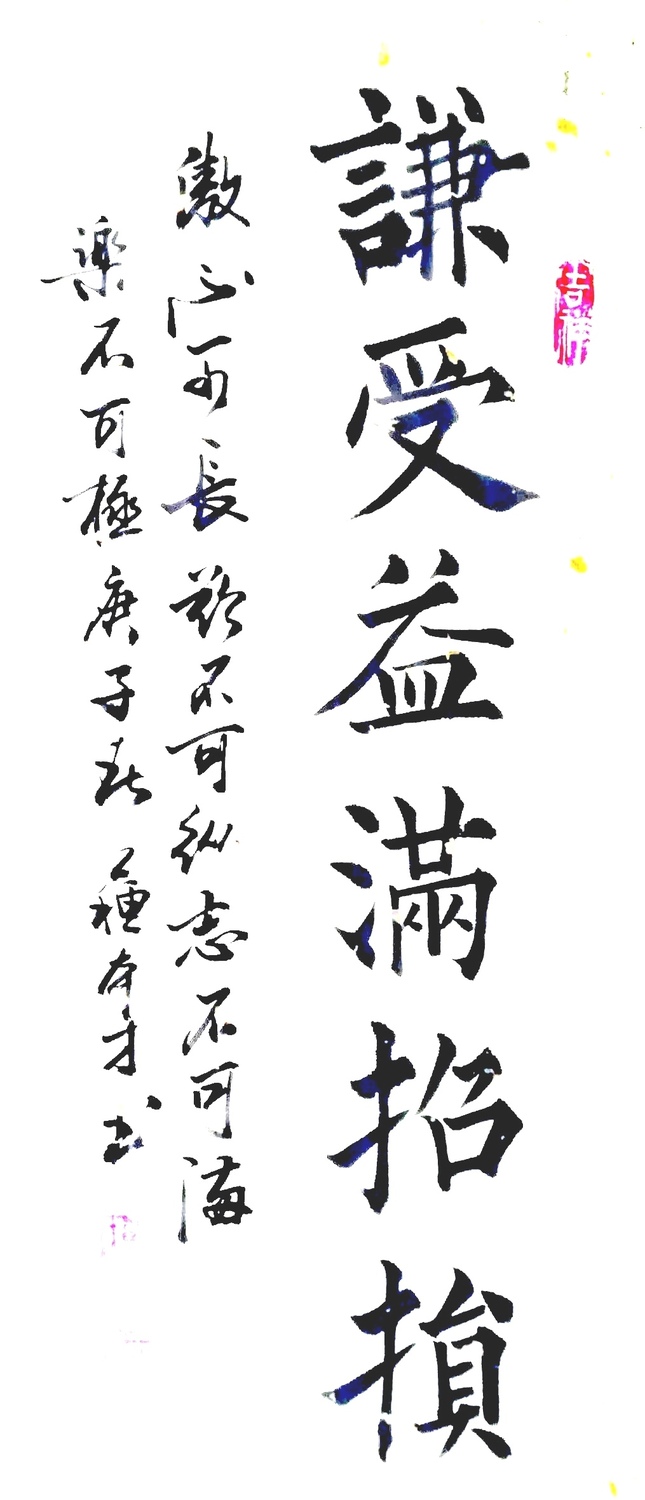 吉祥
謙受益滿招損
傲不可長欲不可縱志不可滿
樂不可極庚子秋種奇才书